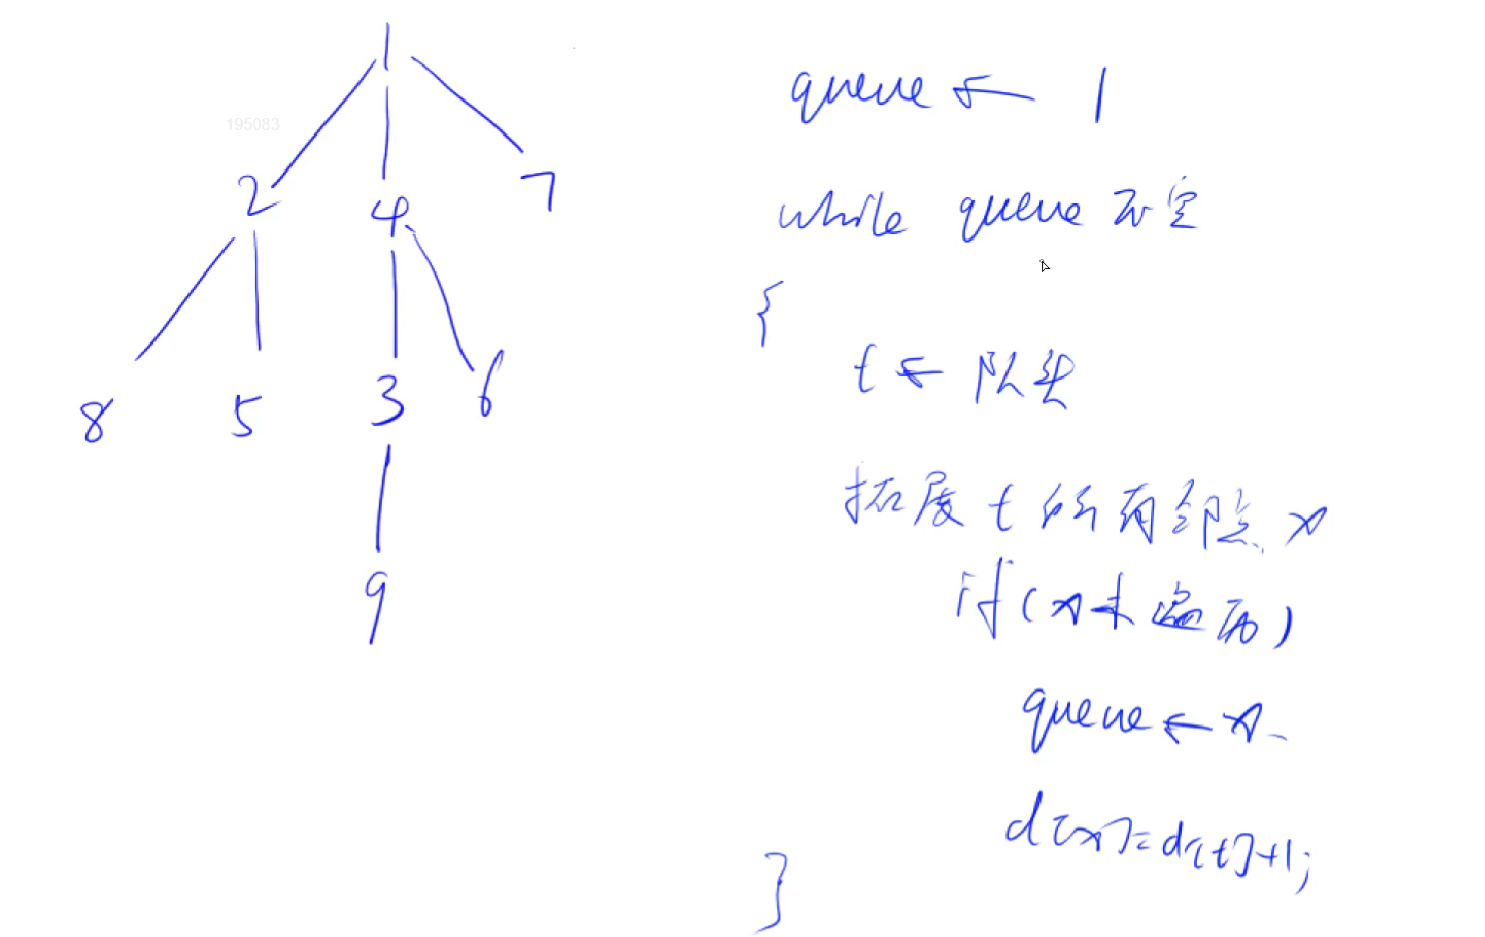 1
195083
2 4 7
8 5 3 6
9
queue ← 1
while queue 不空
{
t ← 队头
拓展 t 所有邻点 x
if (x未遍历)
queue ← x
d[x] = d[t]+1;
}